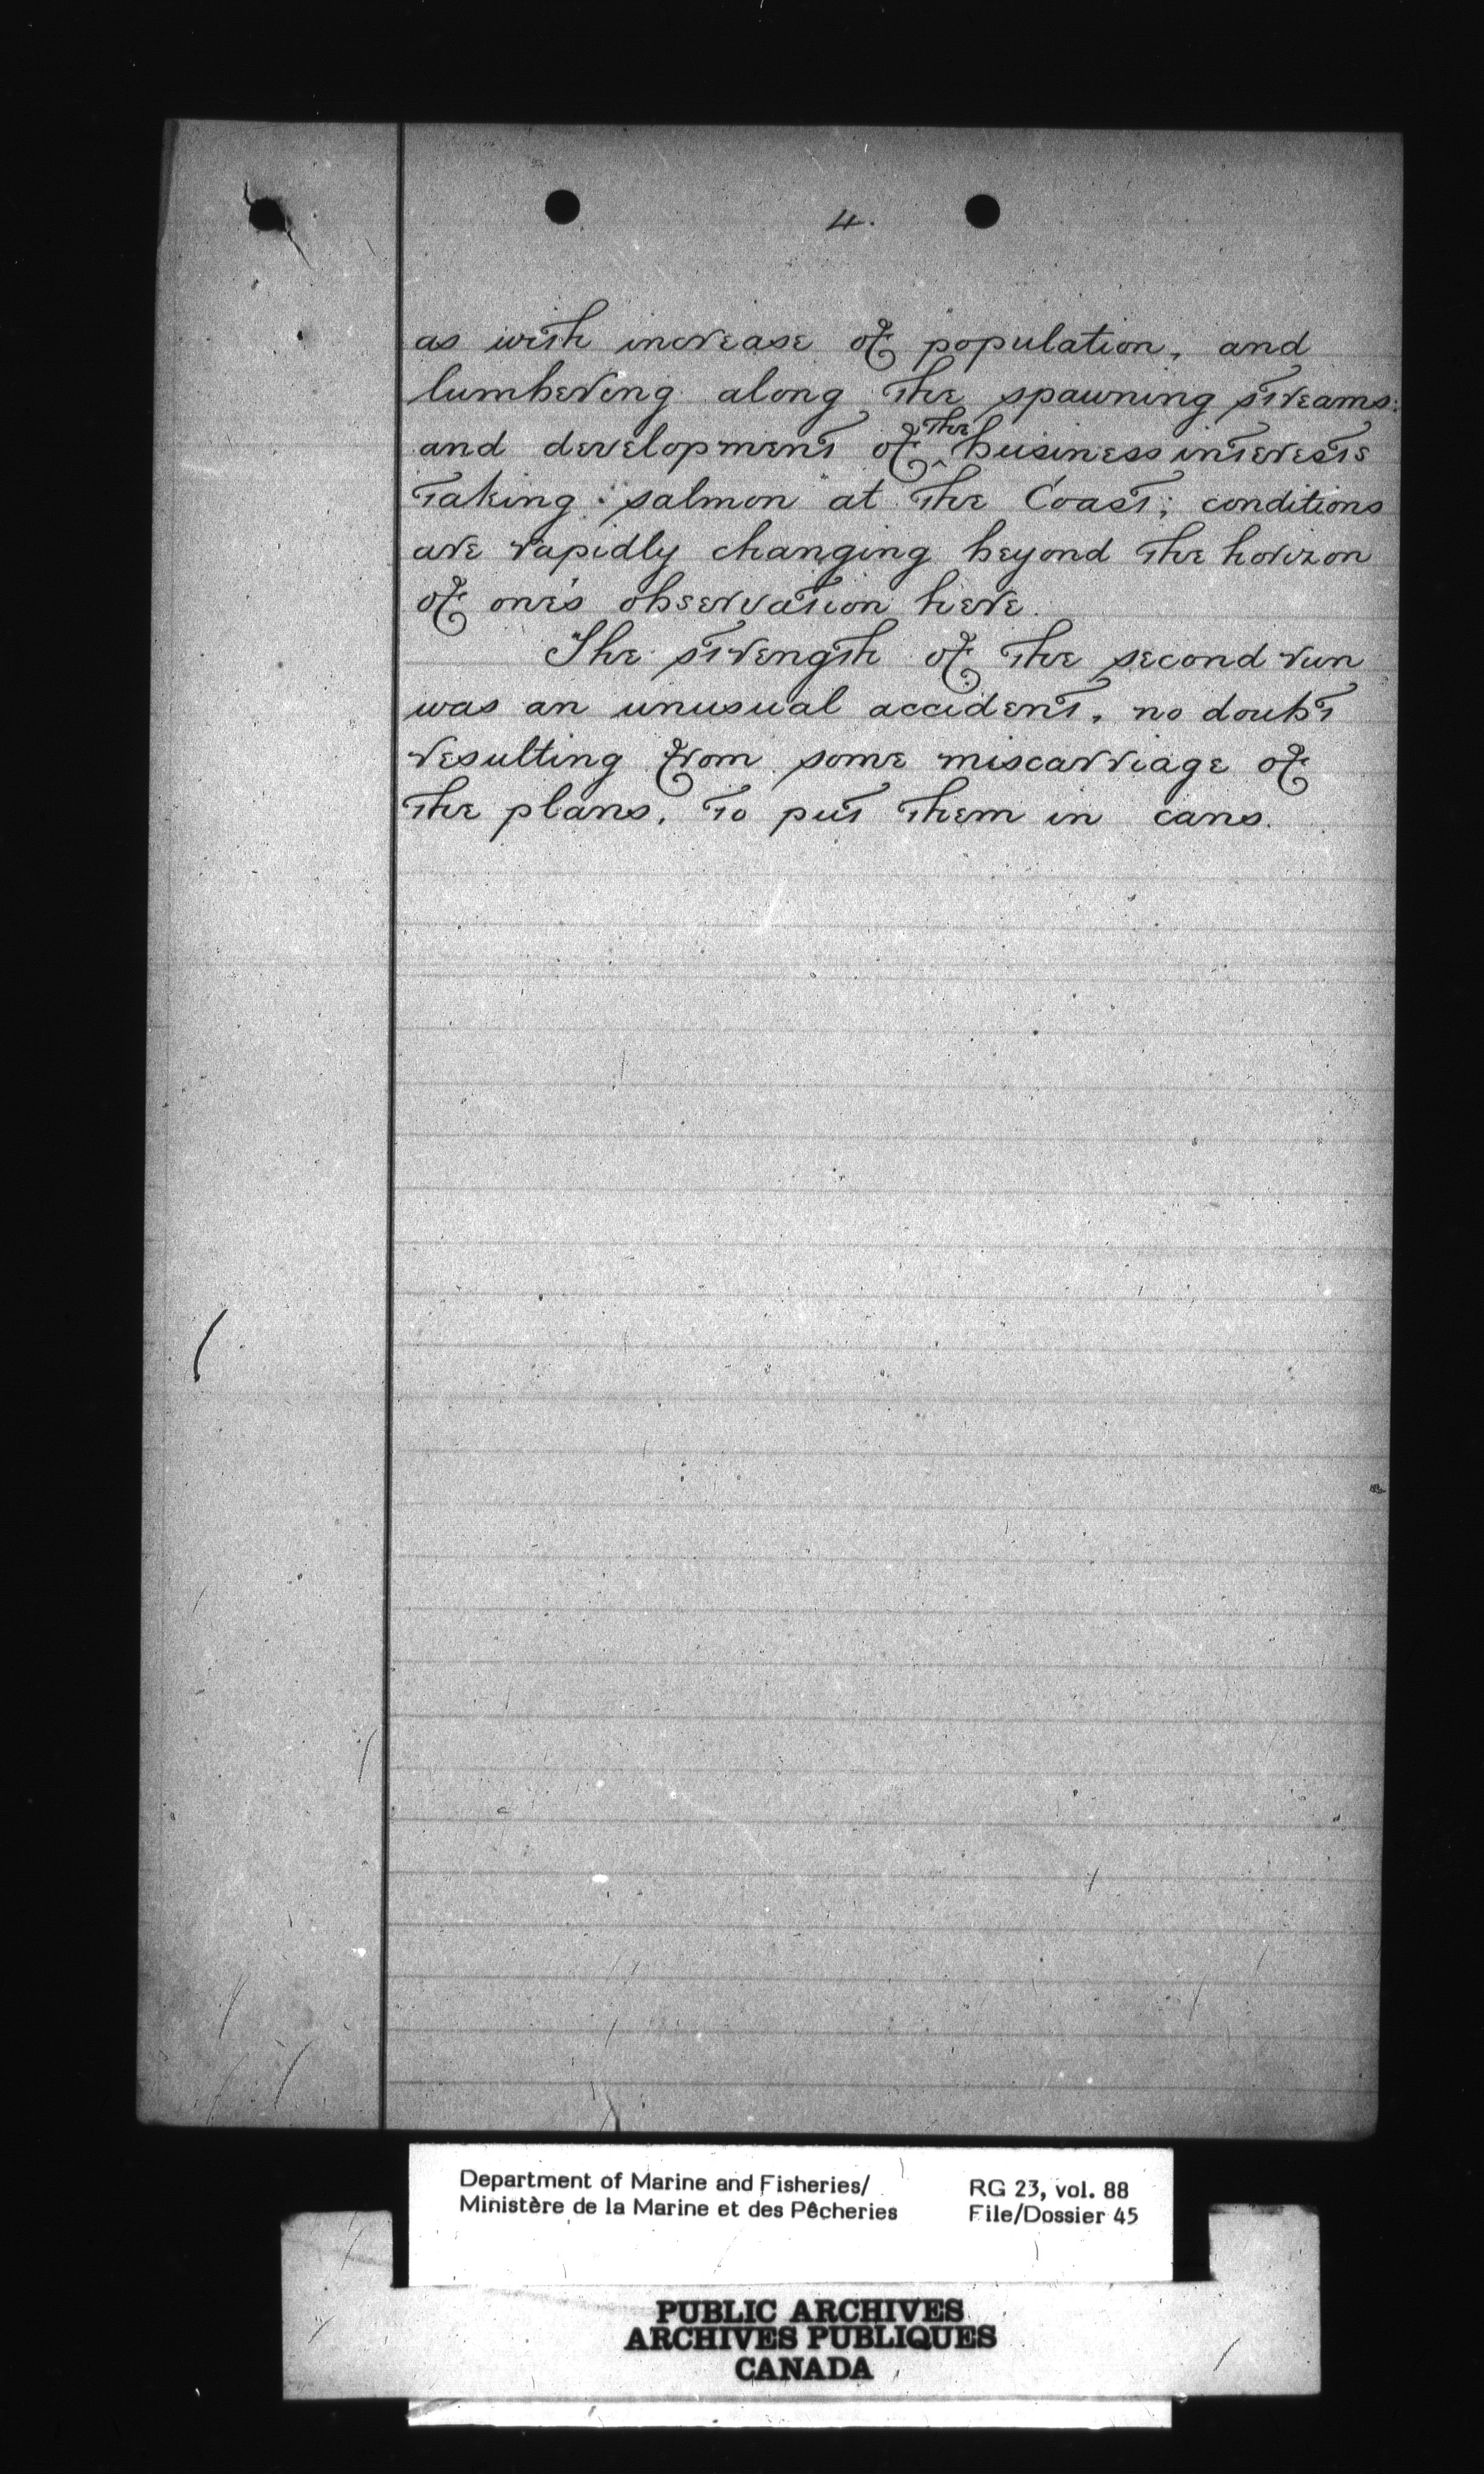 4.
as with increase of population, and
lumbering along the spawning streams:
and development of the business interests
taking salmon at the Coast; conditions
are rapidly changing beyond the horizon
of one's observation here.
The strength of the second run
was an unusual accident, no doubt
resulting from some miscarriage of
the plans, to put them in cans.
Department of Marine and Fisheries/
Ministère de la Marine et des Pêcheries
RG 23, vol. 88
File/Dossier 45
PUBLIC ARCHIVES
ARCHIVES PUBLIQUES
CANADA